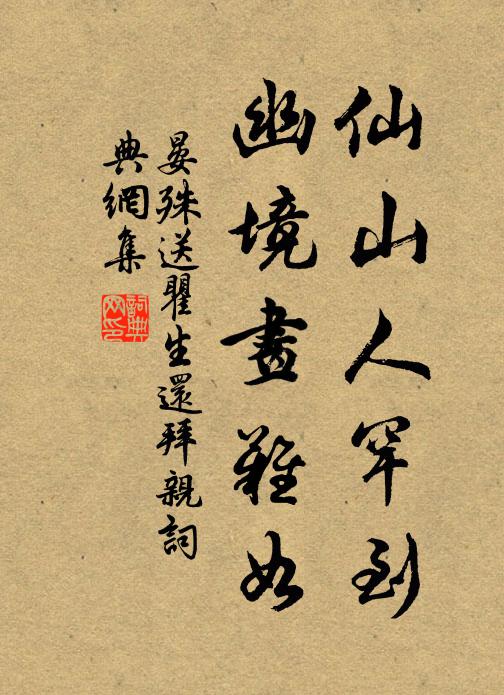 仙山人罕到
幽境畫難如
晏殊送瞿生還拜親詞
典網集
詞典网印